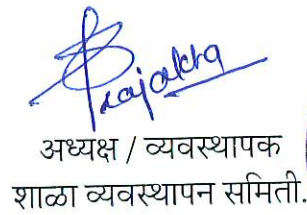 Prajakta
अध्यक्ष / व्यवस्थापक
शाळा व्यवस्थापन समिती